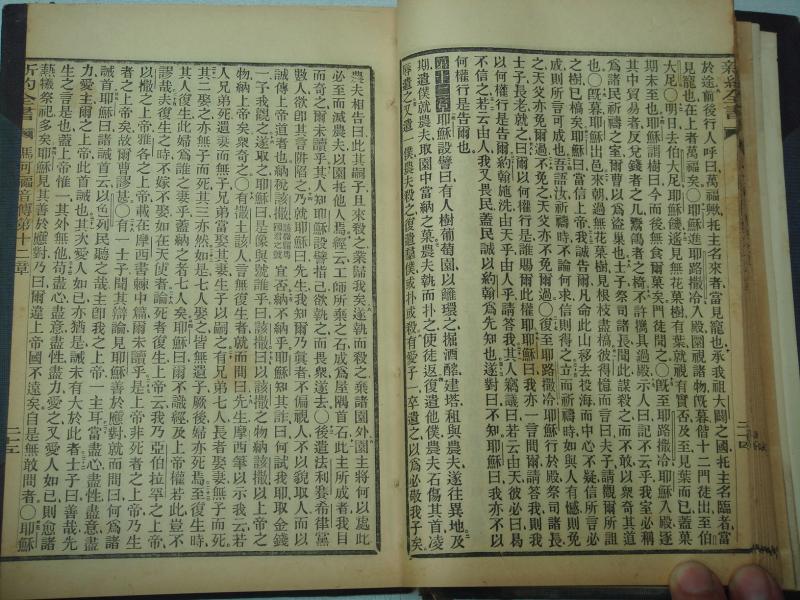 新約全書
二四
於途前後行人呼曰萬福歟托主名來者當見寵也承我祖大闢之國托主名臨者當
見寵也在上者萬福矣○耶穌進耶路撒冷入殿園視諸物既暮偕十二門徒出至伯
大尼○明日去伯大尼耶穌饑遙見無花菓樹有葉就視有實否及至見葉而已蓋菓
期未至也耶穌謂樹曰今而後無食爾菓矣門徒聞之○既至耶路撒冷耶穌入殿逐
其中貿易者反兌錢者之几鬻鴿者之椅不許攜具過殿示人曰記不云乎我室必稱
爲諸民祈禱之室爾曹以爲盜巢也士子祭司諸長聞此謀殺之而不敢以衆奇其道
也○既暮耶穌出邑來朝過無花菓樹見根枝盡槁彼得憶而言曰夫子請觀爾所詛
之樹已槁矣耶穌曰當信上帝我誠告爾凡命此山移去投海而中心不疑信所言必
成則所言可成也吾語汝祈禱時不論何求信則得之立而祈禱時如與人有憾則免
之天父亦免爾過不免之天父亦不免爾過○復至耶路撒冷耶穌行於殿祭司諸長
士子長老就之曰爾以何權行是誰賜爾此權耶穌曰我亦一言問爾請答我則我
以何權行是告爾約翰施洗由天乎由人乎請答我其人竊議曰若云由天彼必曰曷
不信之若云由人我又畏民蓋民誠以約翰爲先知也遂對曰不知耶穌曰我亦不以
何權行是告爾也
第十二章耶穌設譬曰有人樹葡萄園以籬環之掘酒醡建塔租與農夫遂往異地及
期遣僕就農夫取園中當納之菓農夫執而扑之使徒返復遣他僕農夫石傷其首凌
辱遣之又遣一僕農夫殺之復遣羣僕或扑或殺有愛子一卒遣之以爲必敬我子矣
農夫相告曰此其嗣子且來殺之業歸我矣遂執而殺之棄諸園外園主將何以處此
必至而滅農夫以園托他人焉經云工師所棄之石成爲屋隅首石此主所成者我目
而奇之爾未讀乎其人知耶穌設譬指己欲執之而畏衆遂去○後遣法利賽希律黨
數人欲卽其言阱陷之乃就耶穌曰先生我知爾乃眞者不偏視人不以貌取人而以
誠傳上帝道者也納稅該撒宜否納不納乎耶穌知其詐曰何試我耶取金錢
一予我觀之遂取之耶穌曰是像與號誰乎曰該撒曰以該撒之物納該撒以上帝之
物納上帝矣衆奇之○有㗖土該人言無復生者就而問曰先生摩西筆以示我云若
人兄弟死遺妻而無子兄弟當娶其妻生子以嗣之有兄弟七人長者娶妻無子而死
其二娶之亦無子而死其三亦然如是七人娶之皆無遺子厥後婦亦死焉至復生時
其人復生此婦爲誰之妻乎蓋納之者七人矣耶穌曰爾不識經及上帝權若此豈不
謬哉夫復生之時不嫁不娶如在天使者論死者復生上帝云我乃亞伯拉罕之上帝
以撒之上帝雅各之上帝載在摩西書棘中篇爾未讀乎是上帝非死者之上帝乃生
者之上帝矣故爾曹謬甚○有一士子聞其辯論見耶穌善於應對就而問曰何爲諸
誡首耶穌曰諸誡首云以色列民聽之哉主卽我之上帝一主耳當盡心盡性盡意盡
力愛爾主之上帝此首誡也其次愛人如己亦猶是誡未有大於此者士子曰善哉先
生之言是也蓋上帝惟一其外無他苟盡心盡意盡性盡力愛之又愛人如己則愈諸
燔犧祭祀多矣耶穌見其善於應對乃曰爾違上帝國不遠矣自是無敢問者○耶穌
新約全書
馬可福音傳第十二章
二五